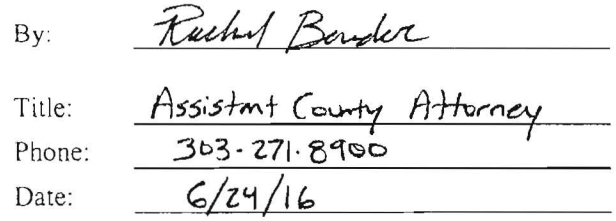 By: Rachel Bender
Title: Assistant County Attorney
Phone: 303-271-8900
Date: 6/24/16